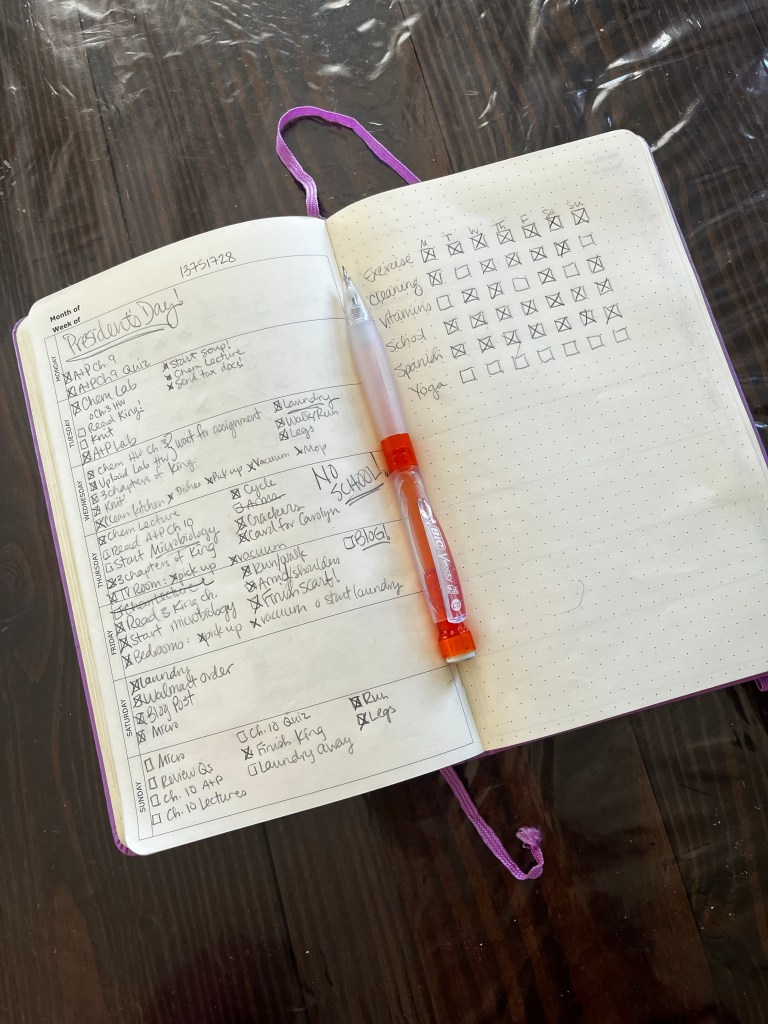 13751728
Month of
Week of
President's Day!
MONDAY
A+P Ch. 9
A+P Ch 9 Quiz
Chem Lab
Ch. 3 HW
Read King!
Knit
A+P Lab
Start soup!
Chem Lecture
Send tax docs!
TUESDAY
Chem HW Ch 3
Upload Lab HW
wait for assignment
3 chapters of King
Knit
Clean kitchen Dishes Pick up Vacuum Mop
Laundry
Walk/Run
Legs
WEDNESDAY
Chem Lecture
Read A+P Ch 10
Start Microbiology
3 chapters of King
TV Room: pick up vacuum
Cycle
Crackers
Card for Carolyn
NO
SCHOOL!
THURSDAY
Chem Lecture
Read 3 King ch.
Start microbiology
Bedrooms: pick up vacuum start laundry
Run/walk
Arms/shoulders
Finish Scarf!
BLOG!
FRIDAY
Laundry
Walmart order
Blog Post
Micro
SATURDAY
Micro
Review Qs
Ch. 10 A+P
Ch. 10 Lectures
Ch. 10 Quiz
Finish King
Laundry away
Run
Legs
SUNDAY
M T W Th F Sa Su
Exercise
Cleaning
Vitamins
School
Spanish
Yoga
BIC Velocity